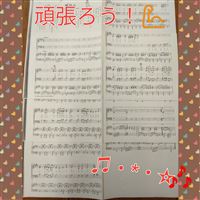 頑張ろう！